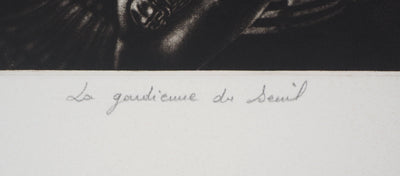 La gardienne du Seuil